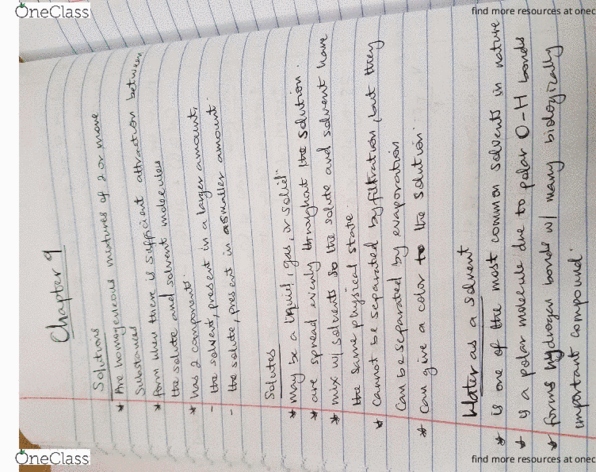 OneClass
find more resources at onec
Chapter 9
Solutions
* Are homogeneous mixtures of 2 or more
substances
* form when there is sufficient attraction between
the solute and solvent molecules
* has 2 components.
- the solvent, present in a larger amount,
- the solute, present in a smaller amount.
Solutes
* may be a liquid, gas, or solid.
* are spread evenly throughout the solution.
* mix w/ solvents so the solute and solvent have
the same physical state.
* cannot be separated by filtration, but they
can be separated by evaporation
* can give a color to the solution.
Water as a solvent
* is one of the most common solvents in nature
* is a polar molecule due to polar O-H bonds
* forms hydrogen bonds w/ many biologically
important compound.
OneClass
find more resources at onec